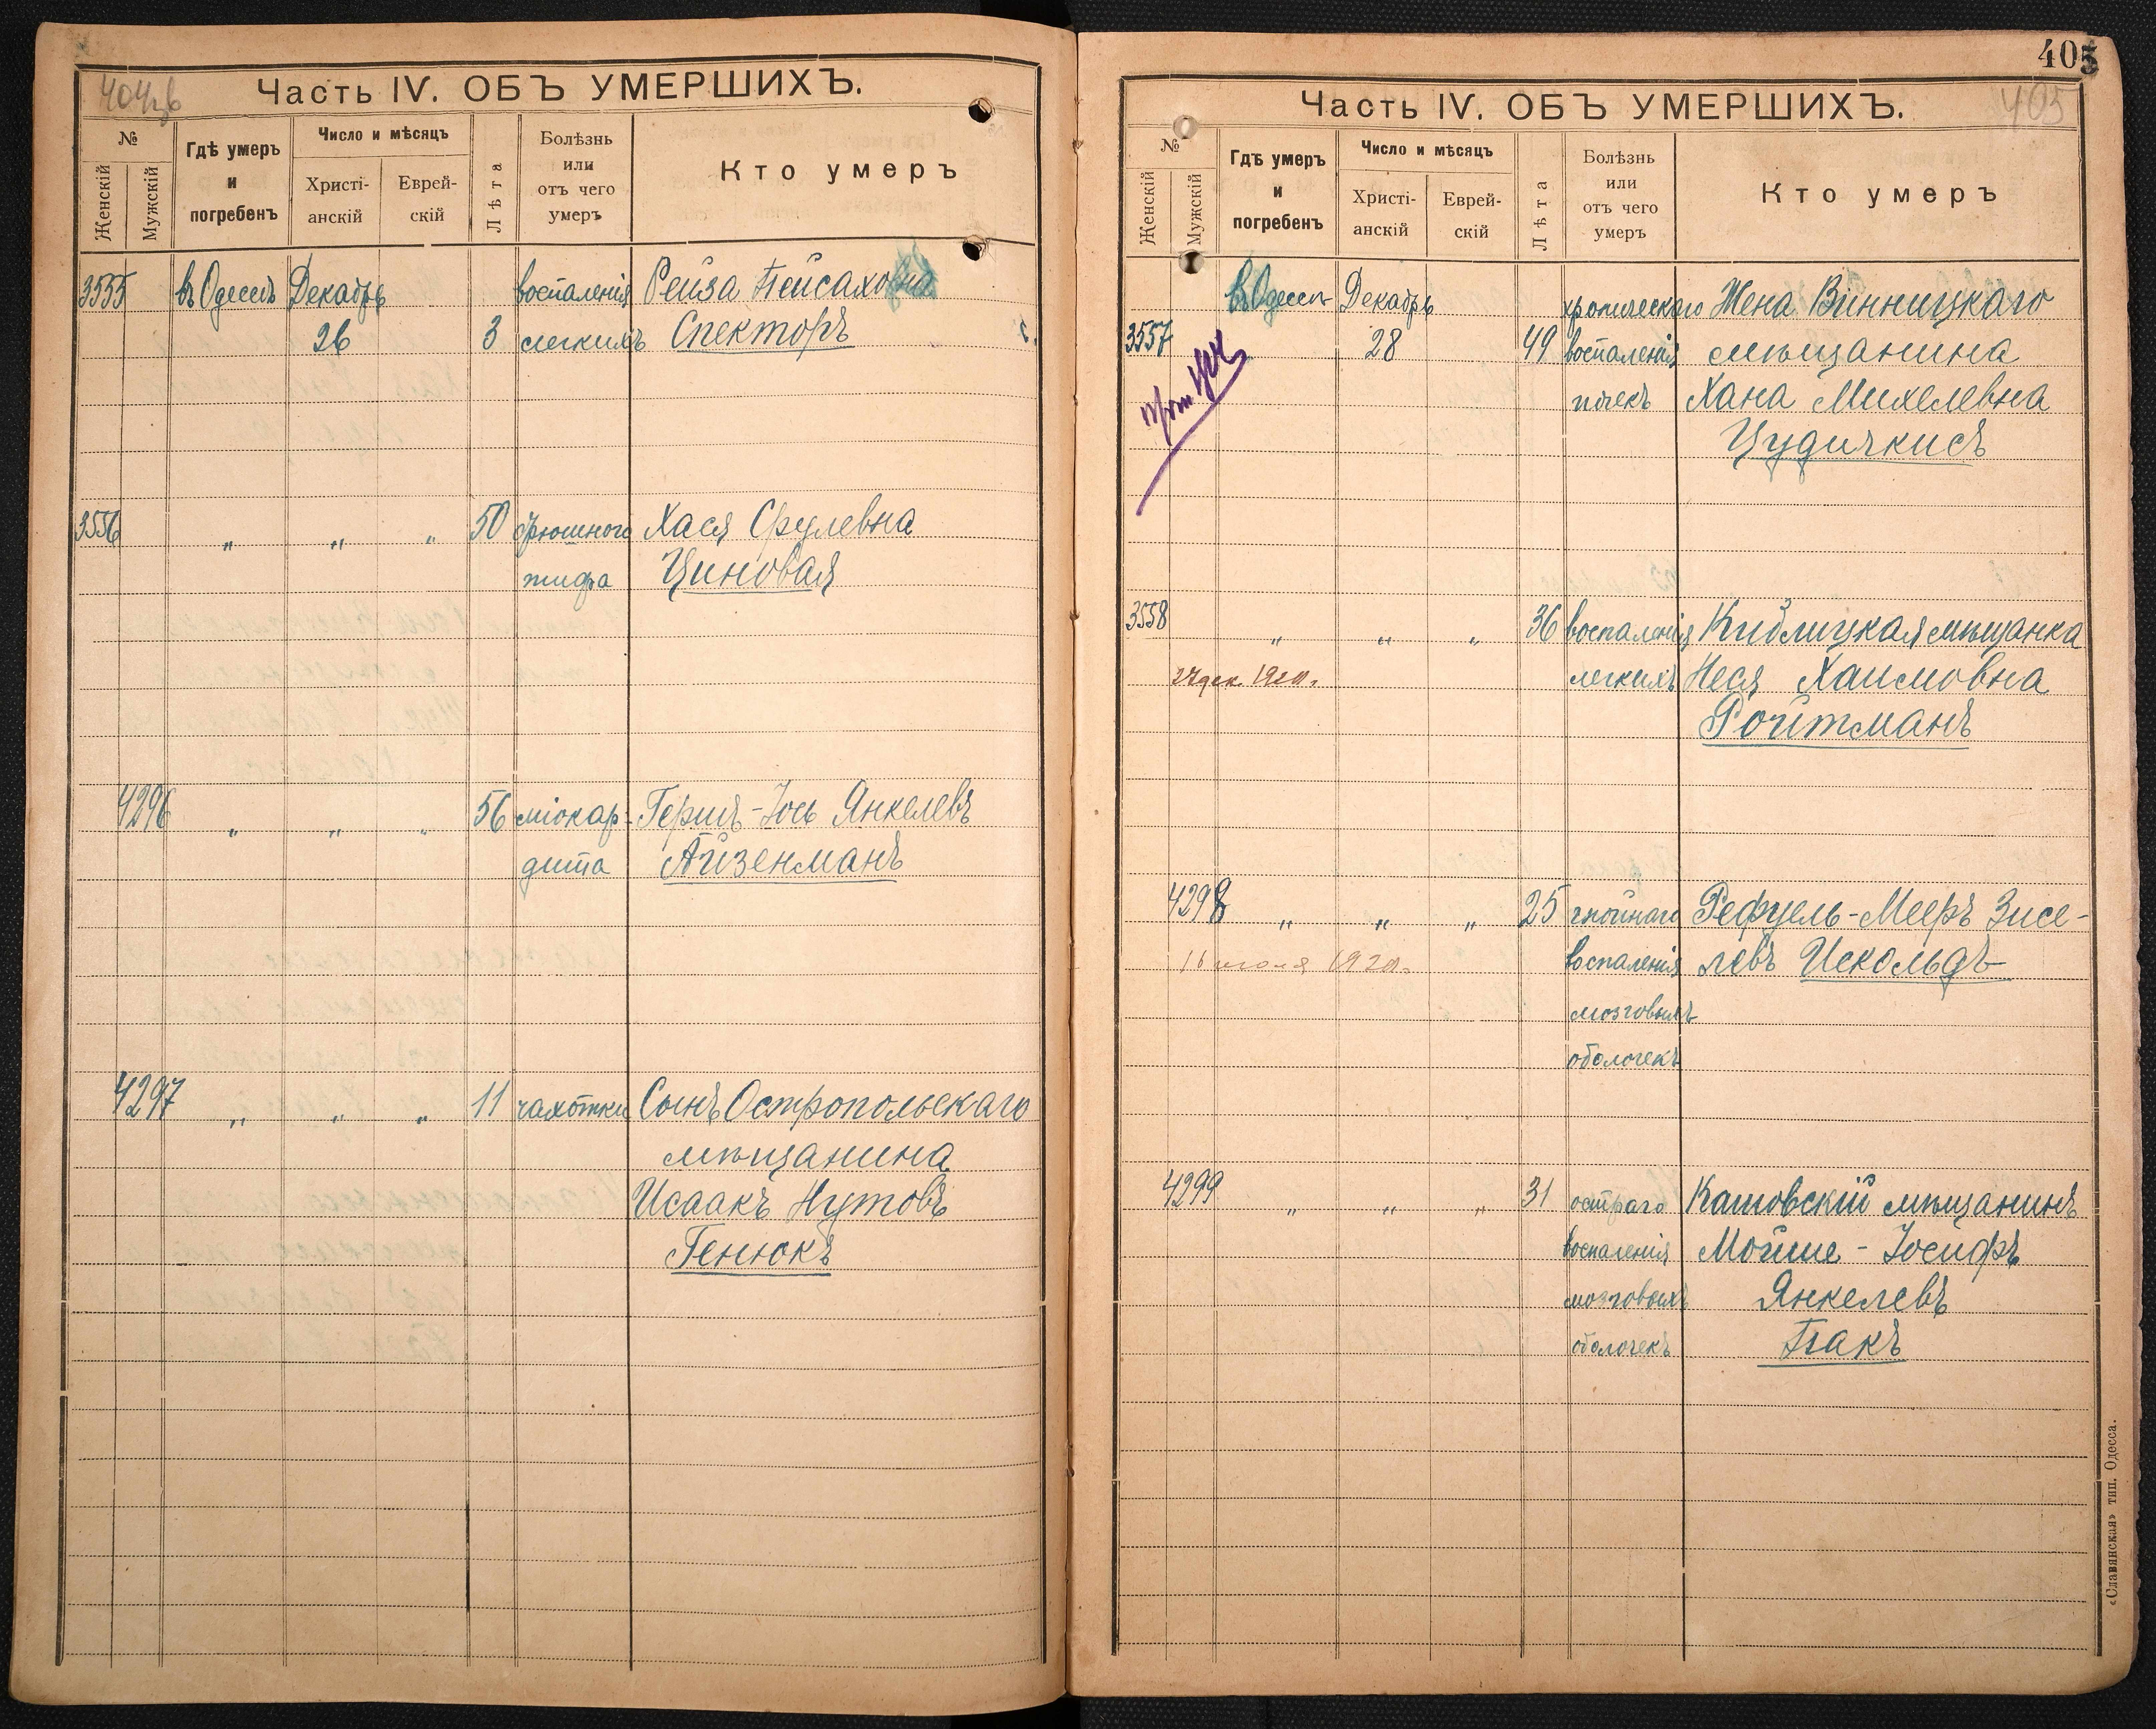 Часть IV. ОБЪ УМЕРШИХЪ.
№
Женскій
Мужскій
Гдѣ умеръ
и
погребенъ
Число и мѣсяцъ
Христі-
анскій
Еврей-
скій
Лѣта
Болѣзнь
или
отъ чего
умеръ
Кто умеръ
3555 въ Одессѣ Декабрь воспаленія Рейза Пейсаховна
26 3 легкихъ Спекторъ
3556 „ „ „ 50 брюшного Хася Срулевна
тифа Циновая
4296 „ „ „ 56 міокар- Гершъ-Іось Янкелевъ
дита Айзенманъ
4297 „ „ „ 11 чахотки Сынъ Остропольскаго
мѣщанина
Исаакъ Нутовъ
Генюкъ
405
405
Часть IV. ОБЪ УМЕРШИХЪ.
№
Женскій
Мужскій
Гдѣ умеръ
и
погребенъ
Число и мѣсяцъ
Христі-
анскій
Еврей-
скій
Лѣта
Болѣзнь
или
отъ чего
умеръ
Кто умеръ
въ Одессѣ Декабрь хроническаго Жена Винницкаго
3557 28 49 воспаленія мѣщанина
почекъ Хана Михелевна
Цудичкисъ
3558 „ „ „ 36 воспаленія Кублицкая мѣщанка
легкихъ Неся Хаимовна
Ройтманъ
4298 „ „ „ 25 гнойнаго Рефуель-Мееръ Зисе-
воспаленія левъ Искольдъ
мозговыхъ
оболочекъ
4299 „ „ „ 31 остраго Катовскій мѣщанинъ
воспаленія Мойше-Іосифъ
мозговыхъ Янкелевъ
оболочекъ Пакъ
«Славянская» тип. Одесса.